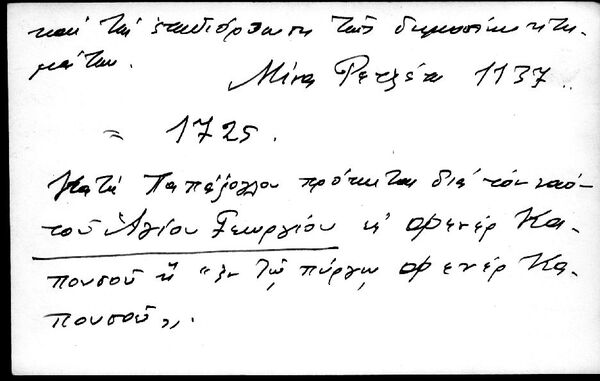 καὶ τὴν ἐπιδιόρθωση τῶν δημοσίων κτη-
μάτων.
Μήνας Ρετζέπ 1137
= 1725.
Κατὰ Παπάζογλου πρόκειται διὰ τὸν ναὸ-
τοῦ Ἁγίου Γεωργίου κ' Φενὲρ Κα-
πουσοῦ ἢ "ἐν τῷ πύργῳ Φενὲρ Κα-
πουσοῦ".